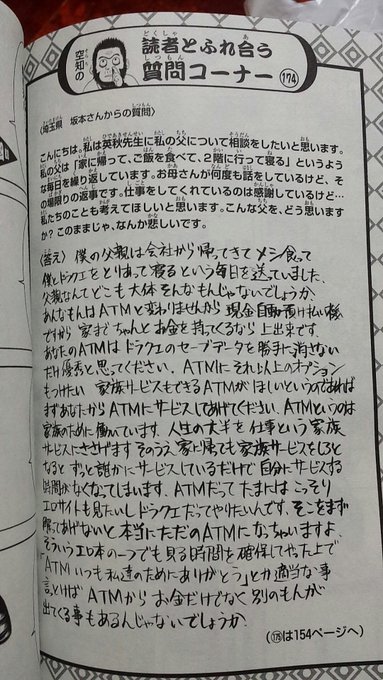 空知の
読者とふれ合う
質問コーナー
174
〈埼玉県 坂本さんからの質問〉
こんにちは。私は英秋先生に私の父について相談をしたいと思います。
私の父は「家に帰って、ご飯を食べて、2階に行って寝る」というよう
な毎日を繰り返しています。お母さんが何度も話をしているけど、そ
の場限りの返事です。仕事をしてくれているのは感謝しているけど…
私たちのことも考えてほしいと思います。こんな父を、どう思います
か？このままじゃ、なんか悲しいです。
〈答え〉 僕の父親は会社から帰ってきてメシ食って
僕とドラクエをとりあって寝るという毎日を送っていました、
父親なんてどこも大体そんなもんじゃないでしょうか、
あんなもんはATMと変わりませんから 現金自動預け払い機
ですから 家までちゃんとお金を持ってくるなら上出来です。
あなたのATMは ドラクエのセーブデータを勝手に消さない
だけ優秀と思ってください、ATMにそれ以上のオプション
もつけたい 家族サービスもできるATMがほしいというのであれば
まずあなたからATMにサービスしてあげてください、ATMというのは
家族のために働いています、人生の大半を仕事という家族
サービスにささげます そのうえ、家に帰っても家族サービスをしろと
なると ずっと誰かにサービスしているだけで自分にサービスする
時間がなくなってしまいます、ATMだってたまにはこっそり
エロサイトも見たいしドラクエだってやりたいんです、そこをまず
解ってあげないと本当にただのATMになっちゃいますよ、
そういうエロ本の一つでも見る時間を確保してやった上で
「ATM いつも私達のためにありがとう」とか適当な事
言っとけば ATMから お金だけでなく 別のもんが
出てくる事もあるんじゃないでしょうか
(175は154ページへ)